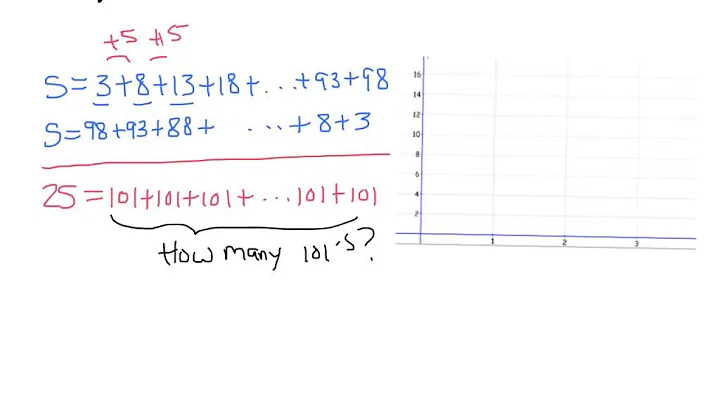 +5 +5
S=3+8+13+18+...+93+98
S=98+93+88+ ...+8+3
2S=101+101+101+...101+101
How many 101's?
16
14
12
10
8
6
4
2
1 2 3